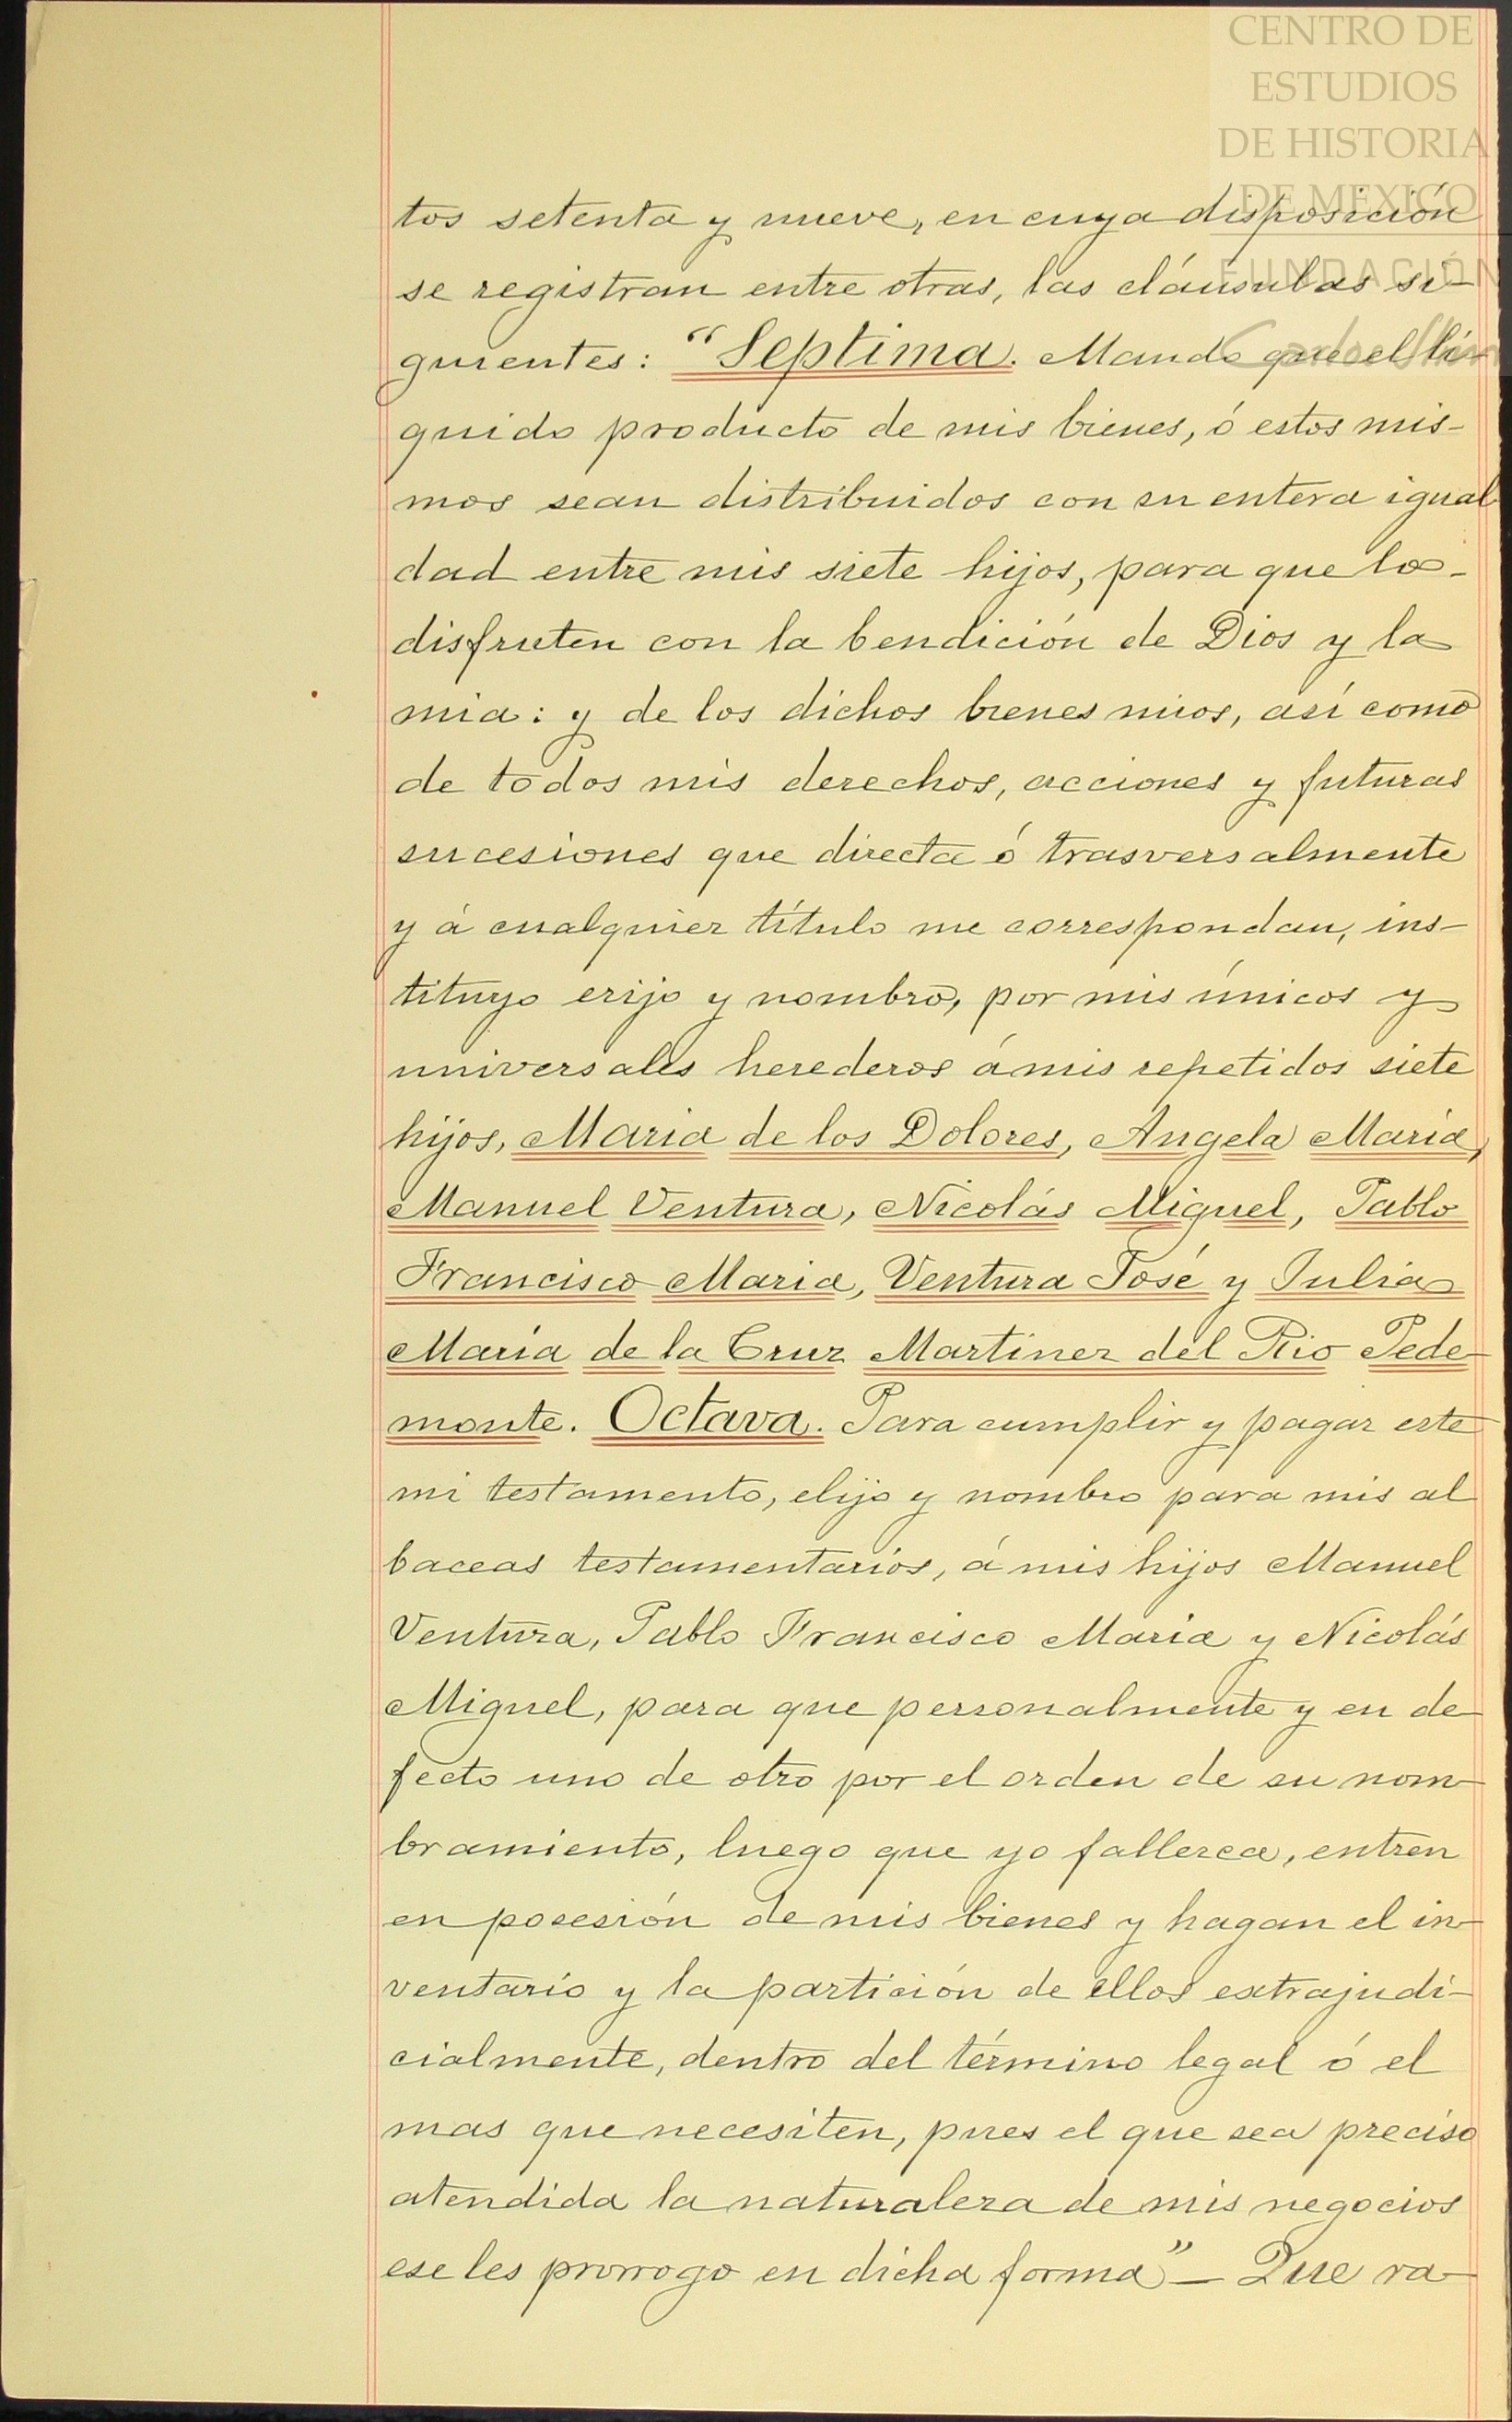 CENTRO DE
ESTUDIOS
DE HISTORIA
DE MEXICO
FUNDACIÓN
Carlos Slim
tos setenta y nueve, en cuya disposición
se registran entre otras, las cláusulas si-
guientes: "Septima. Mando que el lí-
quido producto de mis bienes, ó estos mis-
mos sean distribuidos con su entera igual
dad entre mis siete hijos, para que los-
disfruten con la bendición de Dios y la
mia: y de los dichos bienes mios, así como
de todos mis derechos, acciones y futuras
sucesiones que directa ó trasversalmente
y á cualquier título me correspondan, ins-
tituyo erijo y nombro, por mis únicos y
universales herederos á mis repetidos siete
hijos, Maria de los Dolores, Angela Maria,
Manuel Ventura, Nicolás Miguel, Pablo
Francisco Maria, Ventura José y Julia
Maria de la Cruz Martinez del Rio Pede-
monte. Octava. Para cumplir y pagar este
mi testamento, elijo y nombro para mis al
baceas testamentarios, á mis hijos Manuel
Ventura, Pablo Francisco Maria y Nicolás
Miguel, para que personalmente y en de-
fecto uno de otro por el orden de su nom-
bramiento, luego que yo fallezca, entren
en posesión de mis bienes y hagan el in-
ventario y la partición de ellos extrajudi-
cialmente, dentro del término legal ó el
mas que necesiten, pues el que sea preciso
atendida la naturaleza de mis negocios
ese les prorrogo en dicha forma" — Que ra-